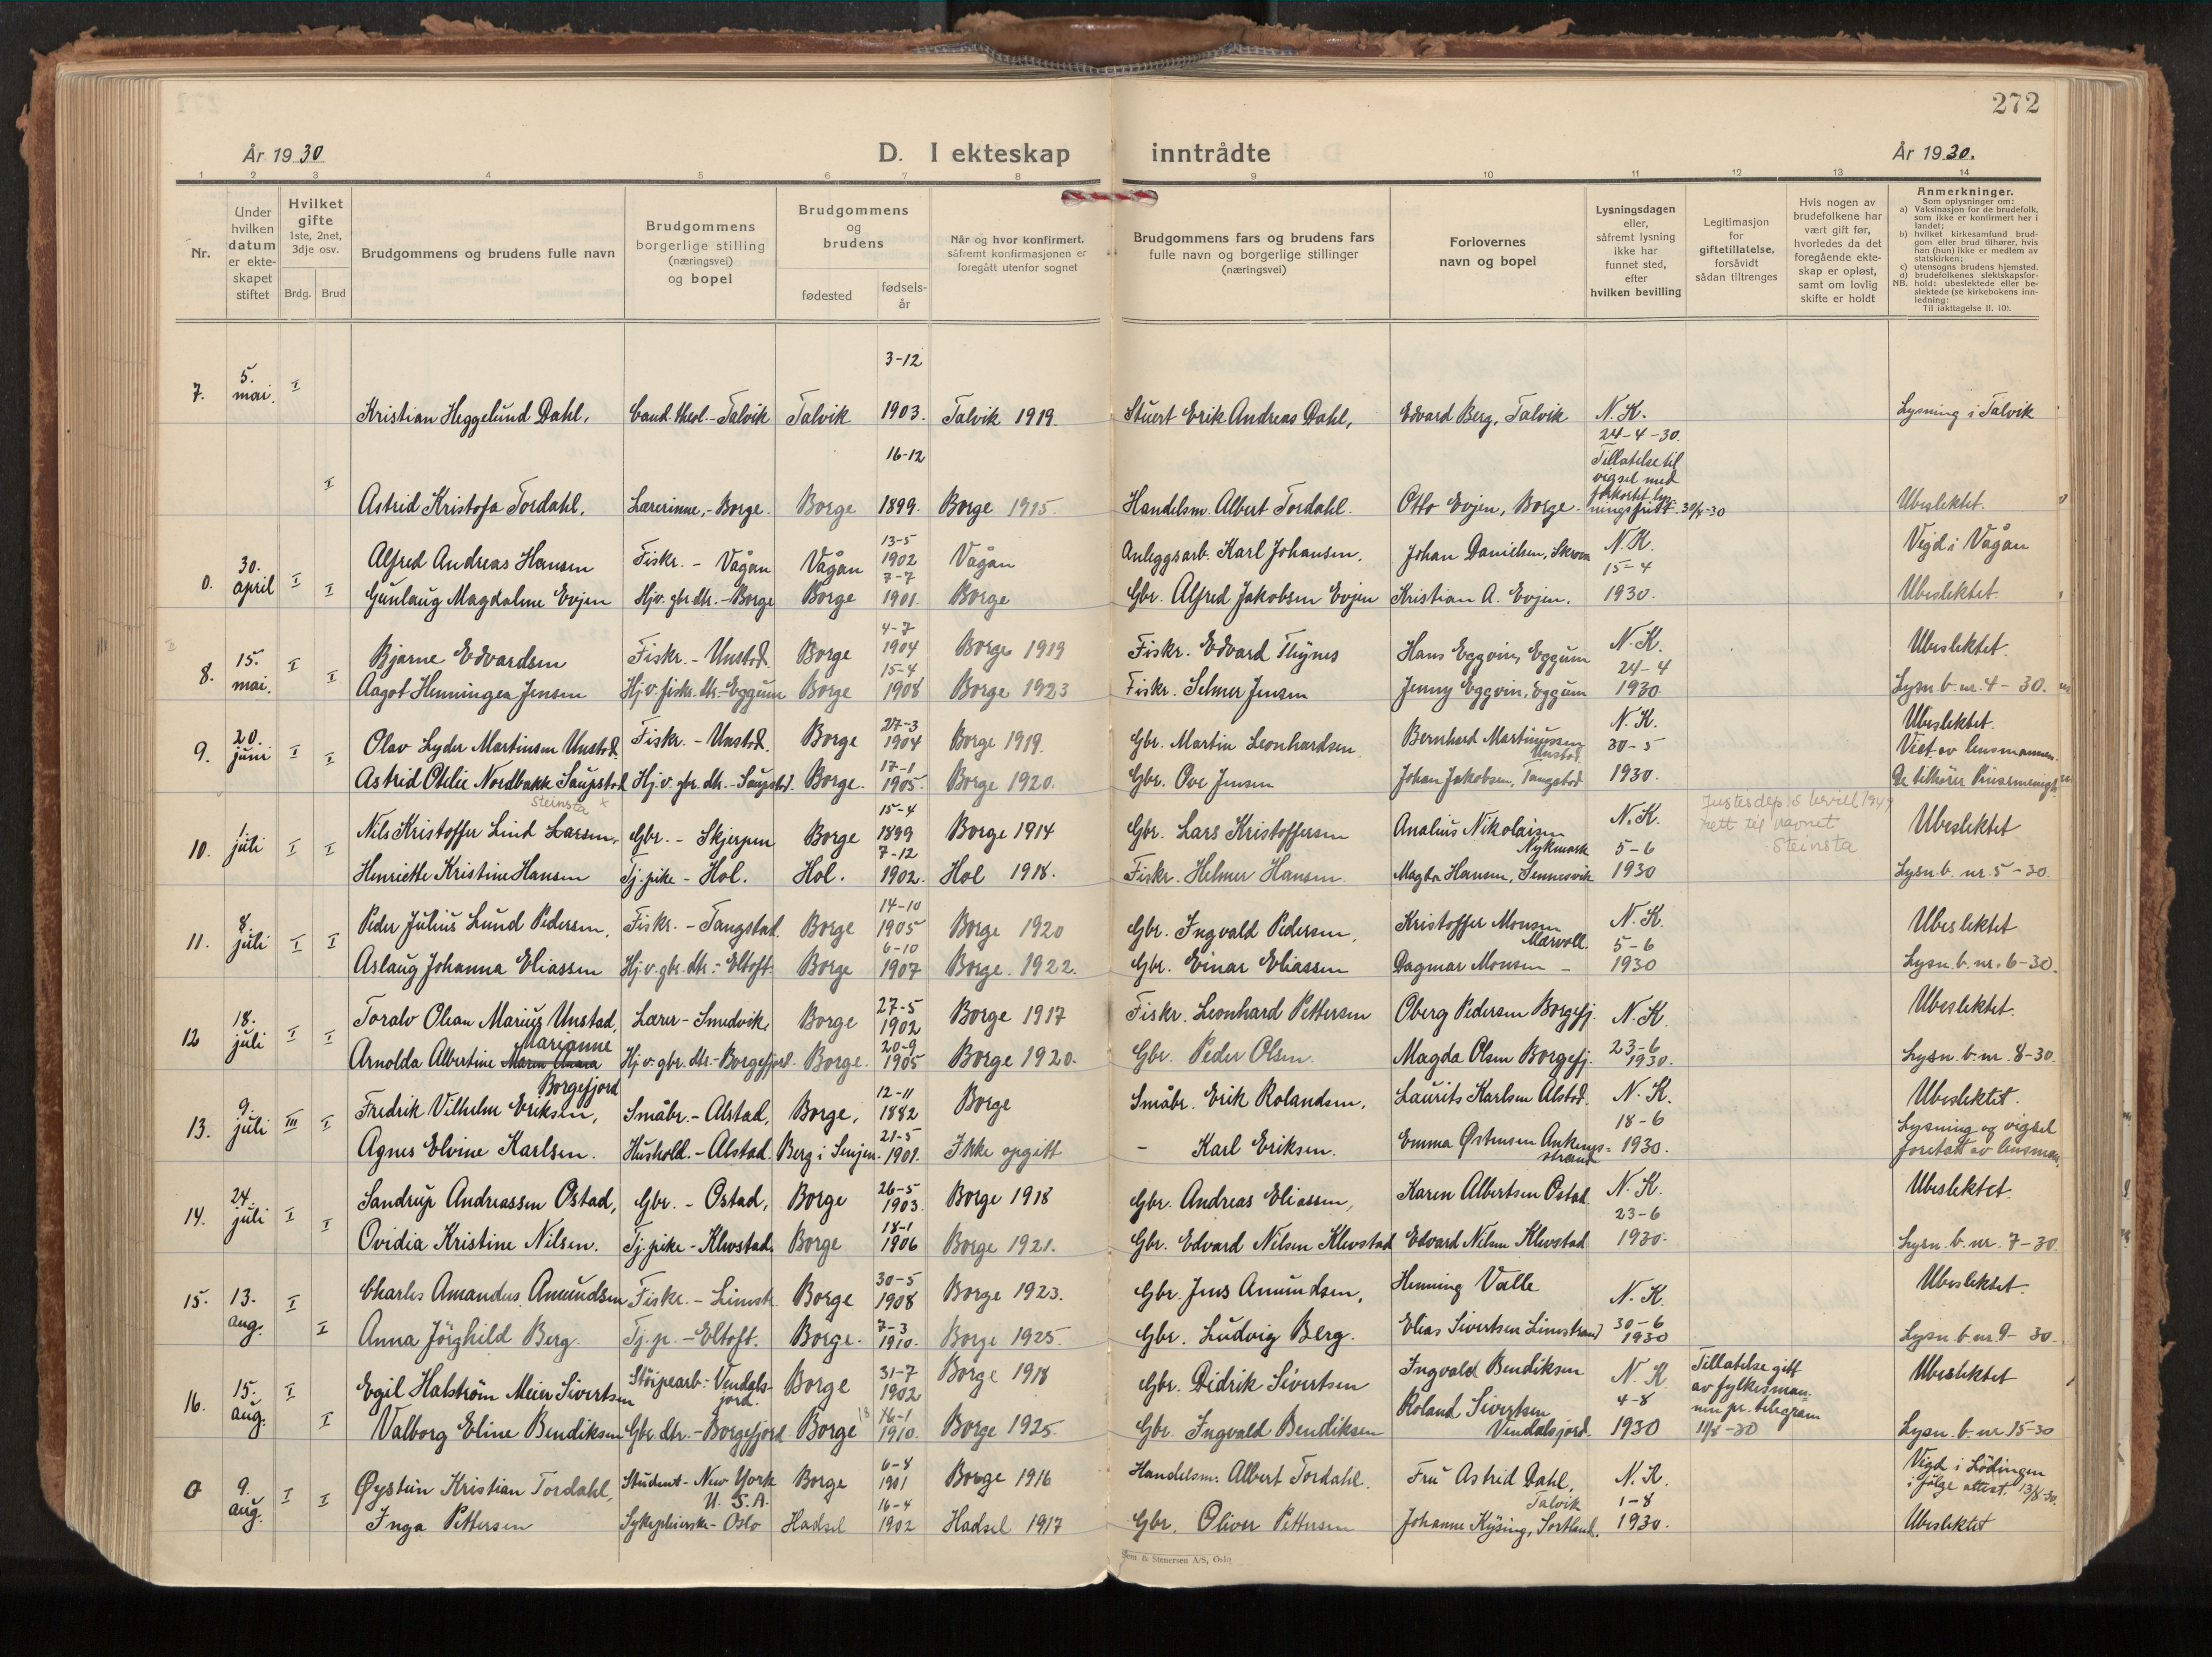 272
År 1930
D. I ekteskap inntrådte
År 1930.
1 2 3 4 5 6 7 8 9 10 11 12 13 14
Nr.
Under hvilken datum er ekte-skapet stiftet
Hvilket gifte
1ste, 2net, 3dje osv.
Brdg. Brud
Brudgommens og brudens fulle navn
Brudgommens borgerlige stilling (næringsvei) og bopel
Brudgommens og brudens
fødested
fødsels-år
Når og hvor konfirmert, såfremt konfirmasjonen er foregått utenfor sognet
Brudgommens fars og brudens fars fulle navn og borgerlige stillinger (næringsvei)
Forlovernes navn og bopel
Lysningsdagen eller, såfremt lysning ikke har funnet sted, efter hvilken bevilling
Legitimasjon for giftetillatelse, forsåvidt sådan tiltrenges
Hvis nogen av brudefolkene har vært gift før, hvorledes da det foregående ekte-skap er opløst, samt om lovlig skifte er holdt
Anmerkninger.
Som oplysninger om:
a) Vaksinasjon for de brudefolk, som ikke er konfirmert her i landet;
b) hvilket kirkesamfund brud-gom eller brud tilhører, hvis han (hun) ikke er medlem av statskirken;
c) utensogns brudens hjemsted.
d) brudefolkenes slektskapsfor-hold: ubeslektede eller be-slektede (se kirkebokens inn-ledning:
NB.
Til iakttagelse II. 10).
7. 5. mai. I Kristian Heggelund Dahl, Cand. theol. - Talvik Talvik 3-12 1903. Talvik 1919. Stuert Erik Andreas Dahl, Edvard Berg, Talvik N.K. 24-4-30. Lysning i Talvik
I Astrid Kristofa Tordahl, Lærerinne, - Borge. Borge 16-12 1899. Borge 1915. Handelsm. Albert Tordahl. Otto Evjen, Borge. Tillatelse til vigsel med forkortet lys-ningsfrist 30/4-30 Ubeslektet.
0. 30. april I Alfred Andreas Hansen Fiskr. - Vågan Vågan 13-5 1902 Vågan Anleggsarb. Karl Johansen. Johan Danielsen, N.K. 15-4 Vigd i Vågan
I Gunlaug Magdalene Evjen Hjv. gbr. dtr. - Borge Borge 7-7 1901. Borge Gbr. Alfred Jakobsen Evjen Kristian A. Evjen. 1930. Ubeslektet.
8. 15. mai. I Bjarne Edvardsen Fiskr. - Unstad. Borge 4-7 1904 Borge 1919 Fiskr. Edvard Thynes Hans Eggvin, Eggum N.K. 24-4 Ubeslektet.
I Aagot Henningea Jensen Hjv. fiskr. dtr. - Eggum Borge 15-4 1908 Borge 1923 Fiskr. Selmer Jensen Jenny Eggvin, Eggum 1930 Lysn. b. nr. 4-30.
9. 20. juni I Olav Lyder Martinsen Unstad Fiskr. - Unstad. Borge 27-3 1904 Borge 1919. Gbr. Martin Leonhardsen Bernhard Martinussen Unstad N.K. 30-5 Ubeslektet. Viet av lensmannen.
I Astrid Otelie Nordbakk Saupstad Hj.v. gbr. dtr. - Saupstad. Borge. 17-1 1905. Borge 1920. Gbr. Ove Jensen Johan Jakobsen, Tangstad 1930. De tilhører Pinsemenigh.
10. 1 juli I Nils Kristoffer Lind Larsen, Steinsta x Gbr. - Skjerpen Borge 15-4 1899 Borge 1914 Gbr. Lars Kristoffersen Analius Nikolaisen Nykmark N.K. 5-6 Justisdep. s bevill 1949 rett til navnet Steinsta Ubeslektet
I Henriette Kristine Hansen Tj. pike - Hol. Hol. 7-12 1902. Hol 1918. Fiskr. Helmer Hansen Magda Hansen, Sennesvik 1930 Lysn. b. nr. 5-30.
11. 8. juli I Peder Julius Lund Pedersen, Fiskr. - Tangstad. Borge 14-10 1905 Borge 1920 Gbr. Ingvald Pedersen, Kristoffer Monsen Mærvoll. N.K. 5-6 Ubeslektet
I Aslaug Johanna Eliassen Hj.v. gbr. dtr. - Eltoft. Borge 6-10 1907 Borge. 1922. Gbr. Einar Eliassen Dagmar Monsen - 1930 Lysn. b. nr. 6-30.
12 18. juli I Toralv Olean Marius Unstad, Lærer - Smedvik, Borge 27-5 1902 Borge 1917 Fiskr. Leonhard Pettersen Oberg Pedersen Borgefj. N.K. 23-6 Ubeslektet.
I Arnolda Albertine Marianne Borgefjord Hj.v. gbr. dtr. - Borgefjord. Borge. 20-9 1905 Borge 1920. Gbr. Peder Olsen. Magda Olsen Borgefj. 1930. Lysn. b. nr. 8-30.
13. 9. juli III Fredrik Vilhelm Eriksen, Småbr. - Alstad, Borge, 12-11 1882 Borge Småbr. Erik Rolandsen, Laurits Karlsen Alstad. N.K. 18-6 Ubeslektet.
I Agnes Elvine Karlsen. Hushold. - Alstad. Berg i Senjen. 21-5 1901. Ikke opgitt - Karl Eriksen. Emma Østensen Ankenes-strand 1930. Lysning og vigsel foretatt av lensman.
14. 24. juli I Sandrup Andreassen Ostad, Gbr. - Ostad, Borge 26-5 1903. Borge 1918 Gbr. Andreas Eliassen, Karen Albertsen Ostad N.K. 23-6 Ubeslektet.
I Ovidia Kristine Nilsen. Tj. pike - Klevstad. Borge 18-1 1906 Borge 1921. Gbr. Edvard Nilsen Klevstad Edvard Nilsen Klevstad 1930. Lysn. b. nr. 7-30.
15. 13. aug. I Charles Amandus Amundsen Fiskr. - Limstr. Borge 30-5 1908 Borge 1923. Gbr. Jens Amundsen, Henning Valle N.K. 30-6 Ubeslektet.
I Anna Jörghild Berg. Tj. p. - Eltoft. Borge. 7-3 1910. Borge 1925. Gbr. Ludvig Berg. Elias Sivertsen Limstrand 1930 Lysn. b. nr 9-30.
16. 15. aug. I Egil Halström Meier Sivertsen Støipearb. - Vendals-jord. Borge 31-7 1902 Borge 1918 Gbr. Didrik Sivertsen Ingvald Bendiksen N.K 4-8 Tillatelse gitt av fylkesman-nen pr. telegram 11/8-30 Ubeslektet
I Valborg Eline Bendiksen Gbr. dtr. - Borgefjord Borge 18 16-1 1910. Borge 1925. Gbr. Ingvald Bendiksen Roland Sivertsen Vendalsjord. 1930 Lysn. b. nr 15-30
0 9. aug. I Øystein Kristian Tordahl, Student - New York U.S.A. Borge 6-8 1901 Borge 1916 Handelsm. Albert Tordahl. Fru Astrid Dahl, Talvik N.K. 1-8 Vigd i Lödingen i følge attest. 13/8-30.
I Inga Pettersen Sykepleierske - Oslo Hadsel 16-4 1902 Hadsel 1917 Gbr. Oliver Pettersen Johanne Kysing, Sortland. 1930. Ubeslektet
Sem & Stenersen A/S, Oslo